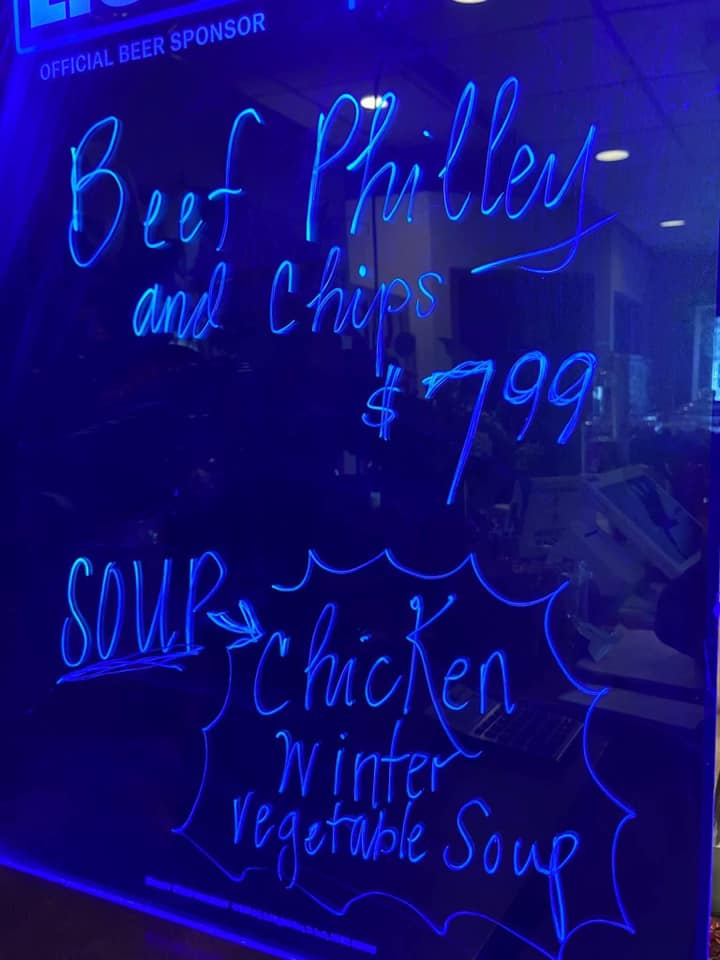 OFFICIAL BEER SPONSOR
Beef Philley
and Chips
$799
SOUP
Chicken
Winter
Vegetable Soup